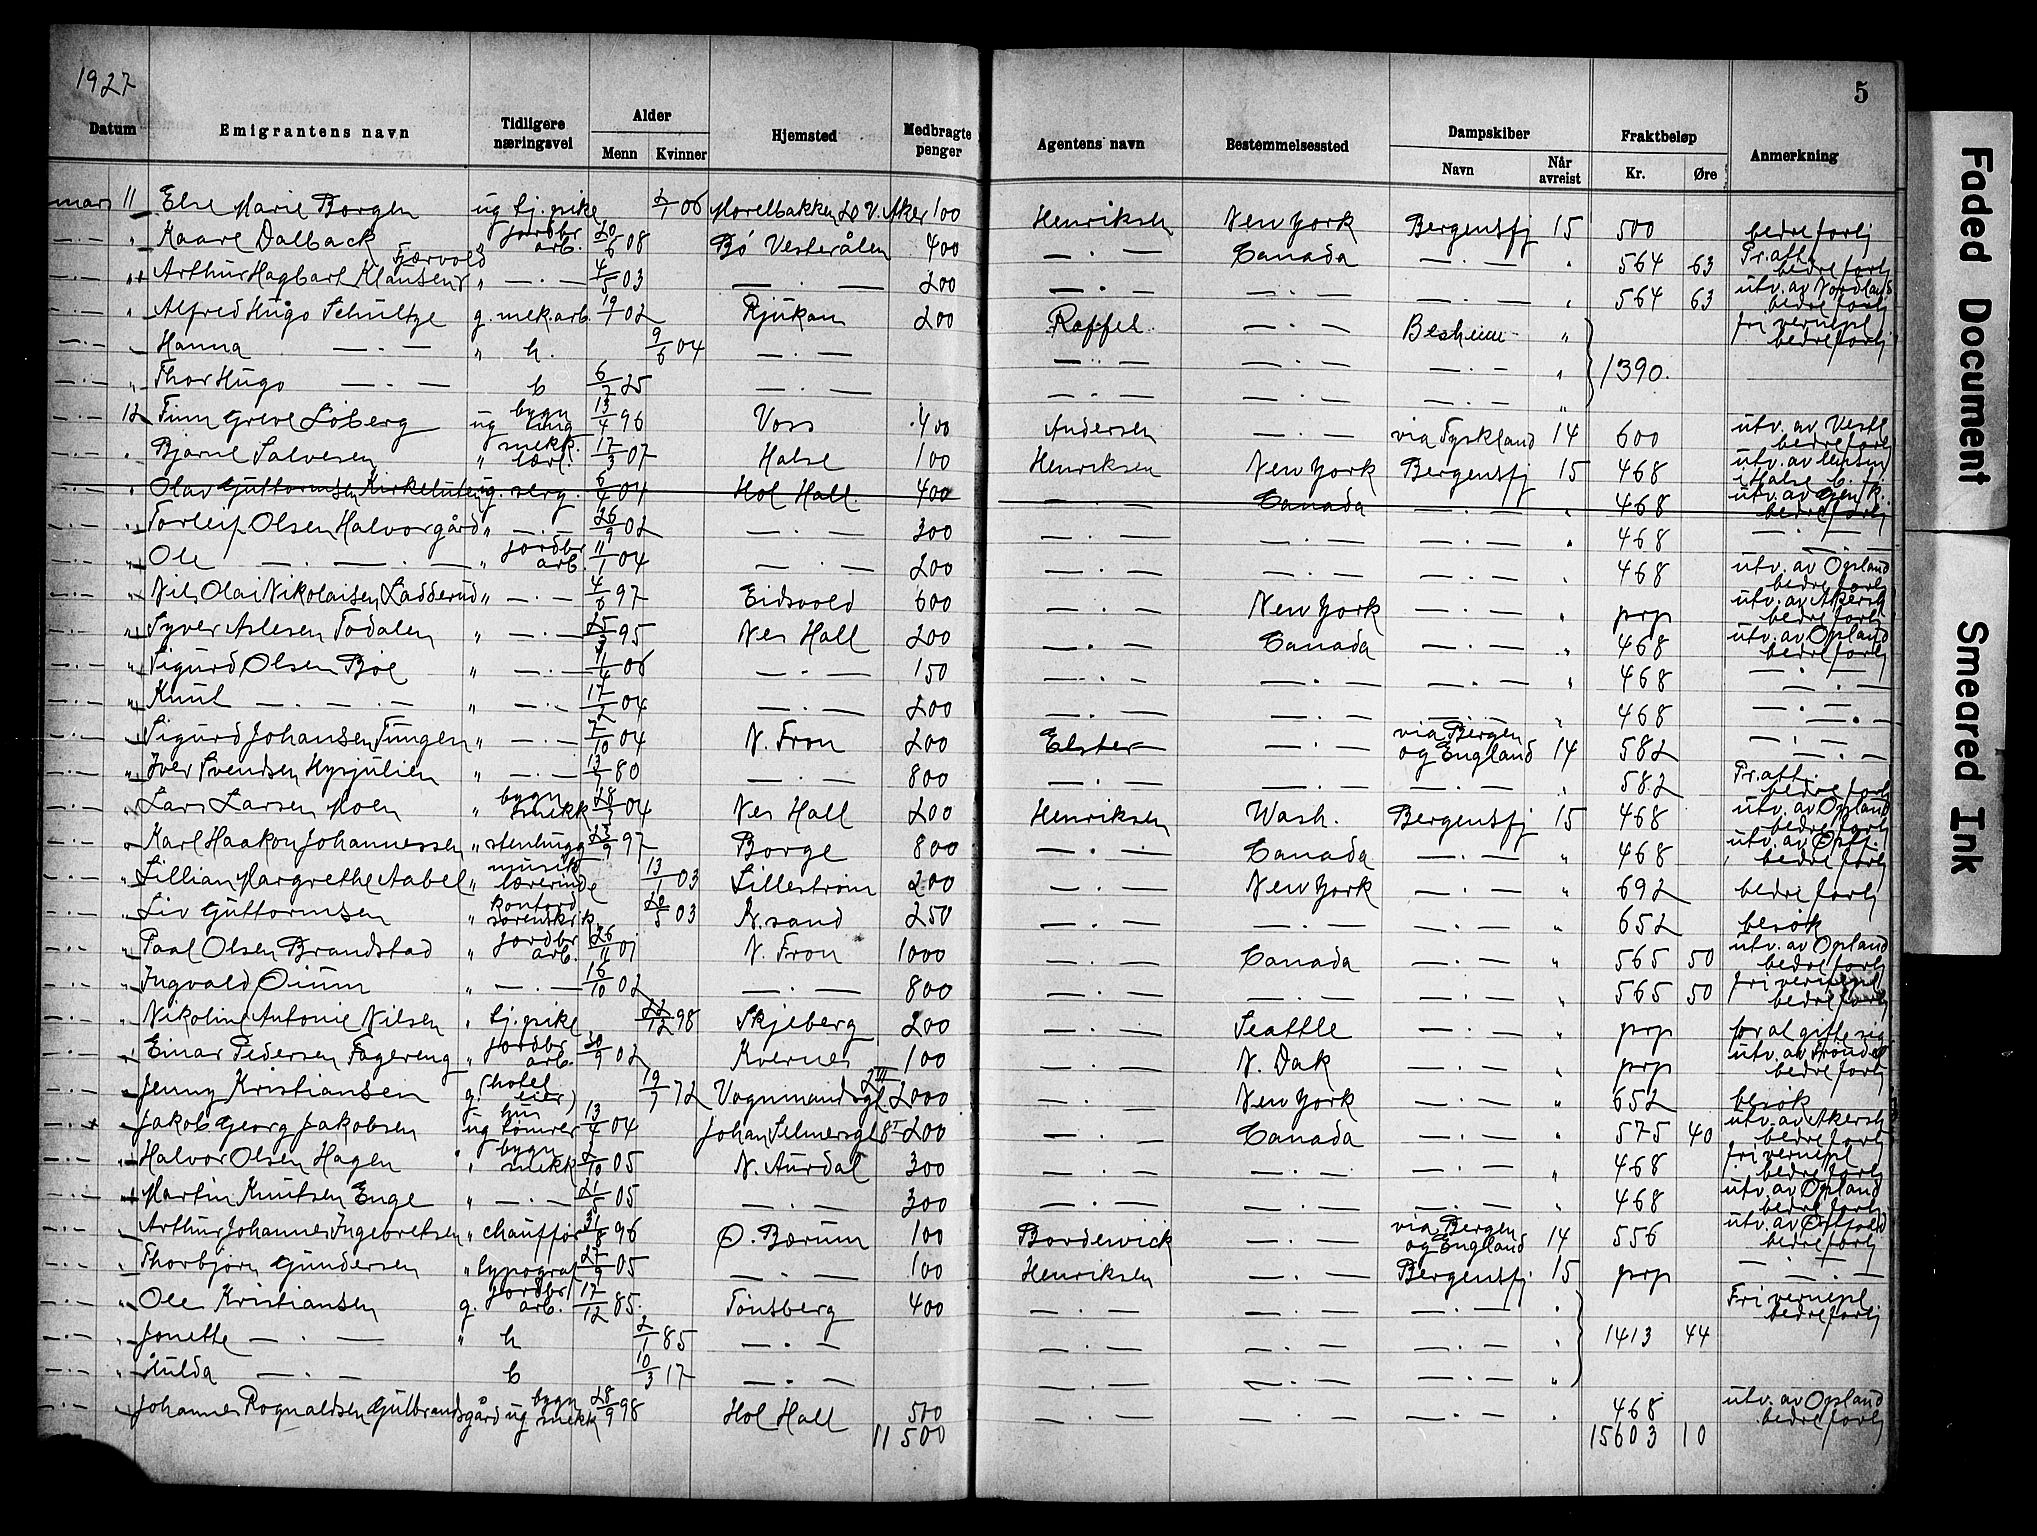 1927
5
Datum Emigrantens navn Tidligere næringsvei Alder Menn Kvinner Hjemsted Medbragte penger Agentens navn Bestemmelsessted Dampskiber Navn Når avreist Fraktbeløp Kr. Øre Anmerkning
mars 11 Else Marie Borgen ug tj. pike 06 Morelbakken 20 V. Aker 100 Henriksen New York Bergensfj 15 500 bedre forhj
" Kaare Dalback " jordbr arb. 20/6 08 Bø Vesterålen 400 — . — Canada — . — " 564 63 Pr.att. bedre forhj
" Arthur Hagbart Klausen Fjærvold " — . — 4/5 03 — . — 200 — . — — . — — . — " 564 63 utv. av Nordland bedre forhj
" Alfred Hugo Schultze g. mek. arb. 19/1 02 Rjukan 200 Raffel — . — Besheim " fri vernepl bedre forhj
" Hanna — . — " h. 9/6 04 — . — — . — — . — — . — " 1390.
" Thor Hugo — . — b 6/7 25 — . — — . — — . — — . — "
— . — 12 Finn Greve Løberg ug bygn ing 13/4 96 Voss 400 Andersen — . — via Tyskland 14 600 utv. av Vestl bedre forhj
" Bjarne Salvesen " mekk. lærl. 17/3 07 Halse 100 Henriksen New York Bergensfj 15 468 utv. av i Halse
" Olav Guttormsen Kirkelute ug. serg. 6/4 04 Hol Hall. 400 — . — Canada — . — " 468 utv. av bedre forhj
" Torleif Olsen Halvorgård " — . — 26/9 02 — . — 300 — . — — . — — . — " 468 — . —
" Ole — . — . — " jordbr arb. 11/1 04 — . — 200 — . — — . — — . — " 468 utv. av Opland bedre forhj
" Nils Olai Nikolaisen Ladderud " — . — 4/6 97 Eidsvold 600 — . — New York — . — " prp utv. av Akersh bedre forhj
" Syver Aslesen Todalen " — . — 25/3 95 Nes Hall 200 — . — Canada — . — " 468 utv. av Opland bedre forhj
" Sigurd Olsen Bøe " — . — 06 — . — 150 — . — — . — — . — " 468 — . —
" Knut — . — . — " — . — 17/2 04 — . — 200 — . — — . — — . — " 468 — . —
" Sigurd Johansen Tungen " — . — 7/10 04 N. Fron 200 Elster — . — via Bergen og England 14 582 — . —
" Iver Svendsen Hysjulien " — . — 13/7 80 — . — 800 — . — — . — — . — " 582 Pr.att. bedre forhj
" Lars Larsen Moen " bygn snekk 28 04 Nes Hall 200 Henriksen Wash. Bergensfj 15 468 utv. av Opland bedre forhj
" Karl Haakon Johannessen " stenhugg 97 Borge 800 — . — Canada — . — " 468 utv. av Østfj bedre forhj
" Lillian Margrethe Aabel " musik lærerinde 13/1 03 Lillestrøm 200 — . — New York — . — " 692 bedre forhj
" Liv Guttormsen " kontord sorenskr.k. 20/5 03 K. sand 250 — . — — . — — . — " 652 besøk
" Paal Olsen Brandstad " jordbr arb. 26/11 01 N. Fron 1000 — . — Canada — . — " 565 50 utv. av Opland bedre forhj
" Ingvald Øium " — . — 16/10 02 — . — 800 — . — — . — — . — " 565 50 fri vernepl bedre forhj
" Nikoline Antonie Nilsen " tj. pike 22/12 98 Skjeberg 200 — . — Seattle — . — " prp for at gifte sig
" Einar Pedersen Fagereng " jordbr arb. 30/9 02 Kvernes 100 — . — N. Dak — . — " prp utv. av Trøndel bedre forhj
" Jenny Kristiansen g. (hotel eier) 19/7 72 Vognmandsgt 2 III 2000 — . — New York — . — " 652 besøk
" Jakob Georg Jakobsen ug tømrer 13/4 04 Johan Selmersgt 8 I 200 — . — Canada — . — " 575 40 utv. av Akersh bedre forhj
" Halvor Olsen Hagen " bygn snekk 2/10 05 N. Aurdal 300 — . — — . — — . — " 468 fri vernepl bedre forhj
" Martin Knutsen Enge " — . — 21/5 05 — . — 300 — . — — . — — . — " 468 utv. av Opland bedre forhj
" Arthur Johannes Ingebretsen " chauffør 31/8 96 Ø. Bærum 100 Bordewick — . — via Bergen og England 14 556 utv. av Østfold bedre forhj
" Thorbjørn Gundersen " typograf 25/9 05 — . — 100 Henriksen — . — Bergensfj 15 prp — . —
" Ole Kristiansen g. jordbr arb. 17/12 85. Tønsberg 400 — . — — . — — . — " Fri vernepl bedre forhj
" Jonette — . — " h 2/1 85 — . — — . — — . — — . — " 1413 44
" Hulda — . — b 10/3 17 — . — — . — — . — — . — "
" Johannes Rognaldsen Gulbrandsgård ug bygn snekk 28/9 98 Hol Hall 500 — . — — . — — . — " 468 utv. av Opland bedre forhj
11 500 15603 10
Faded Document
Smeared Ink